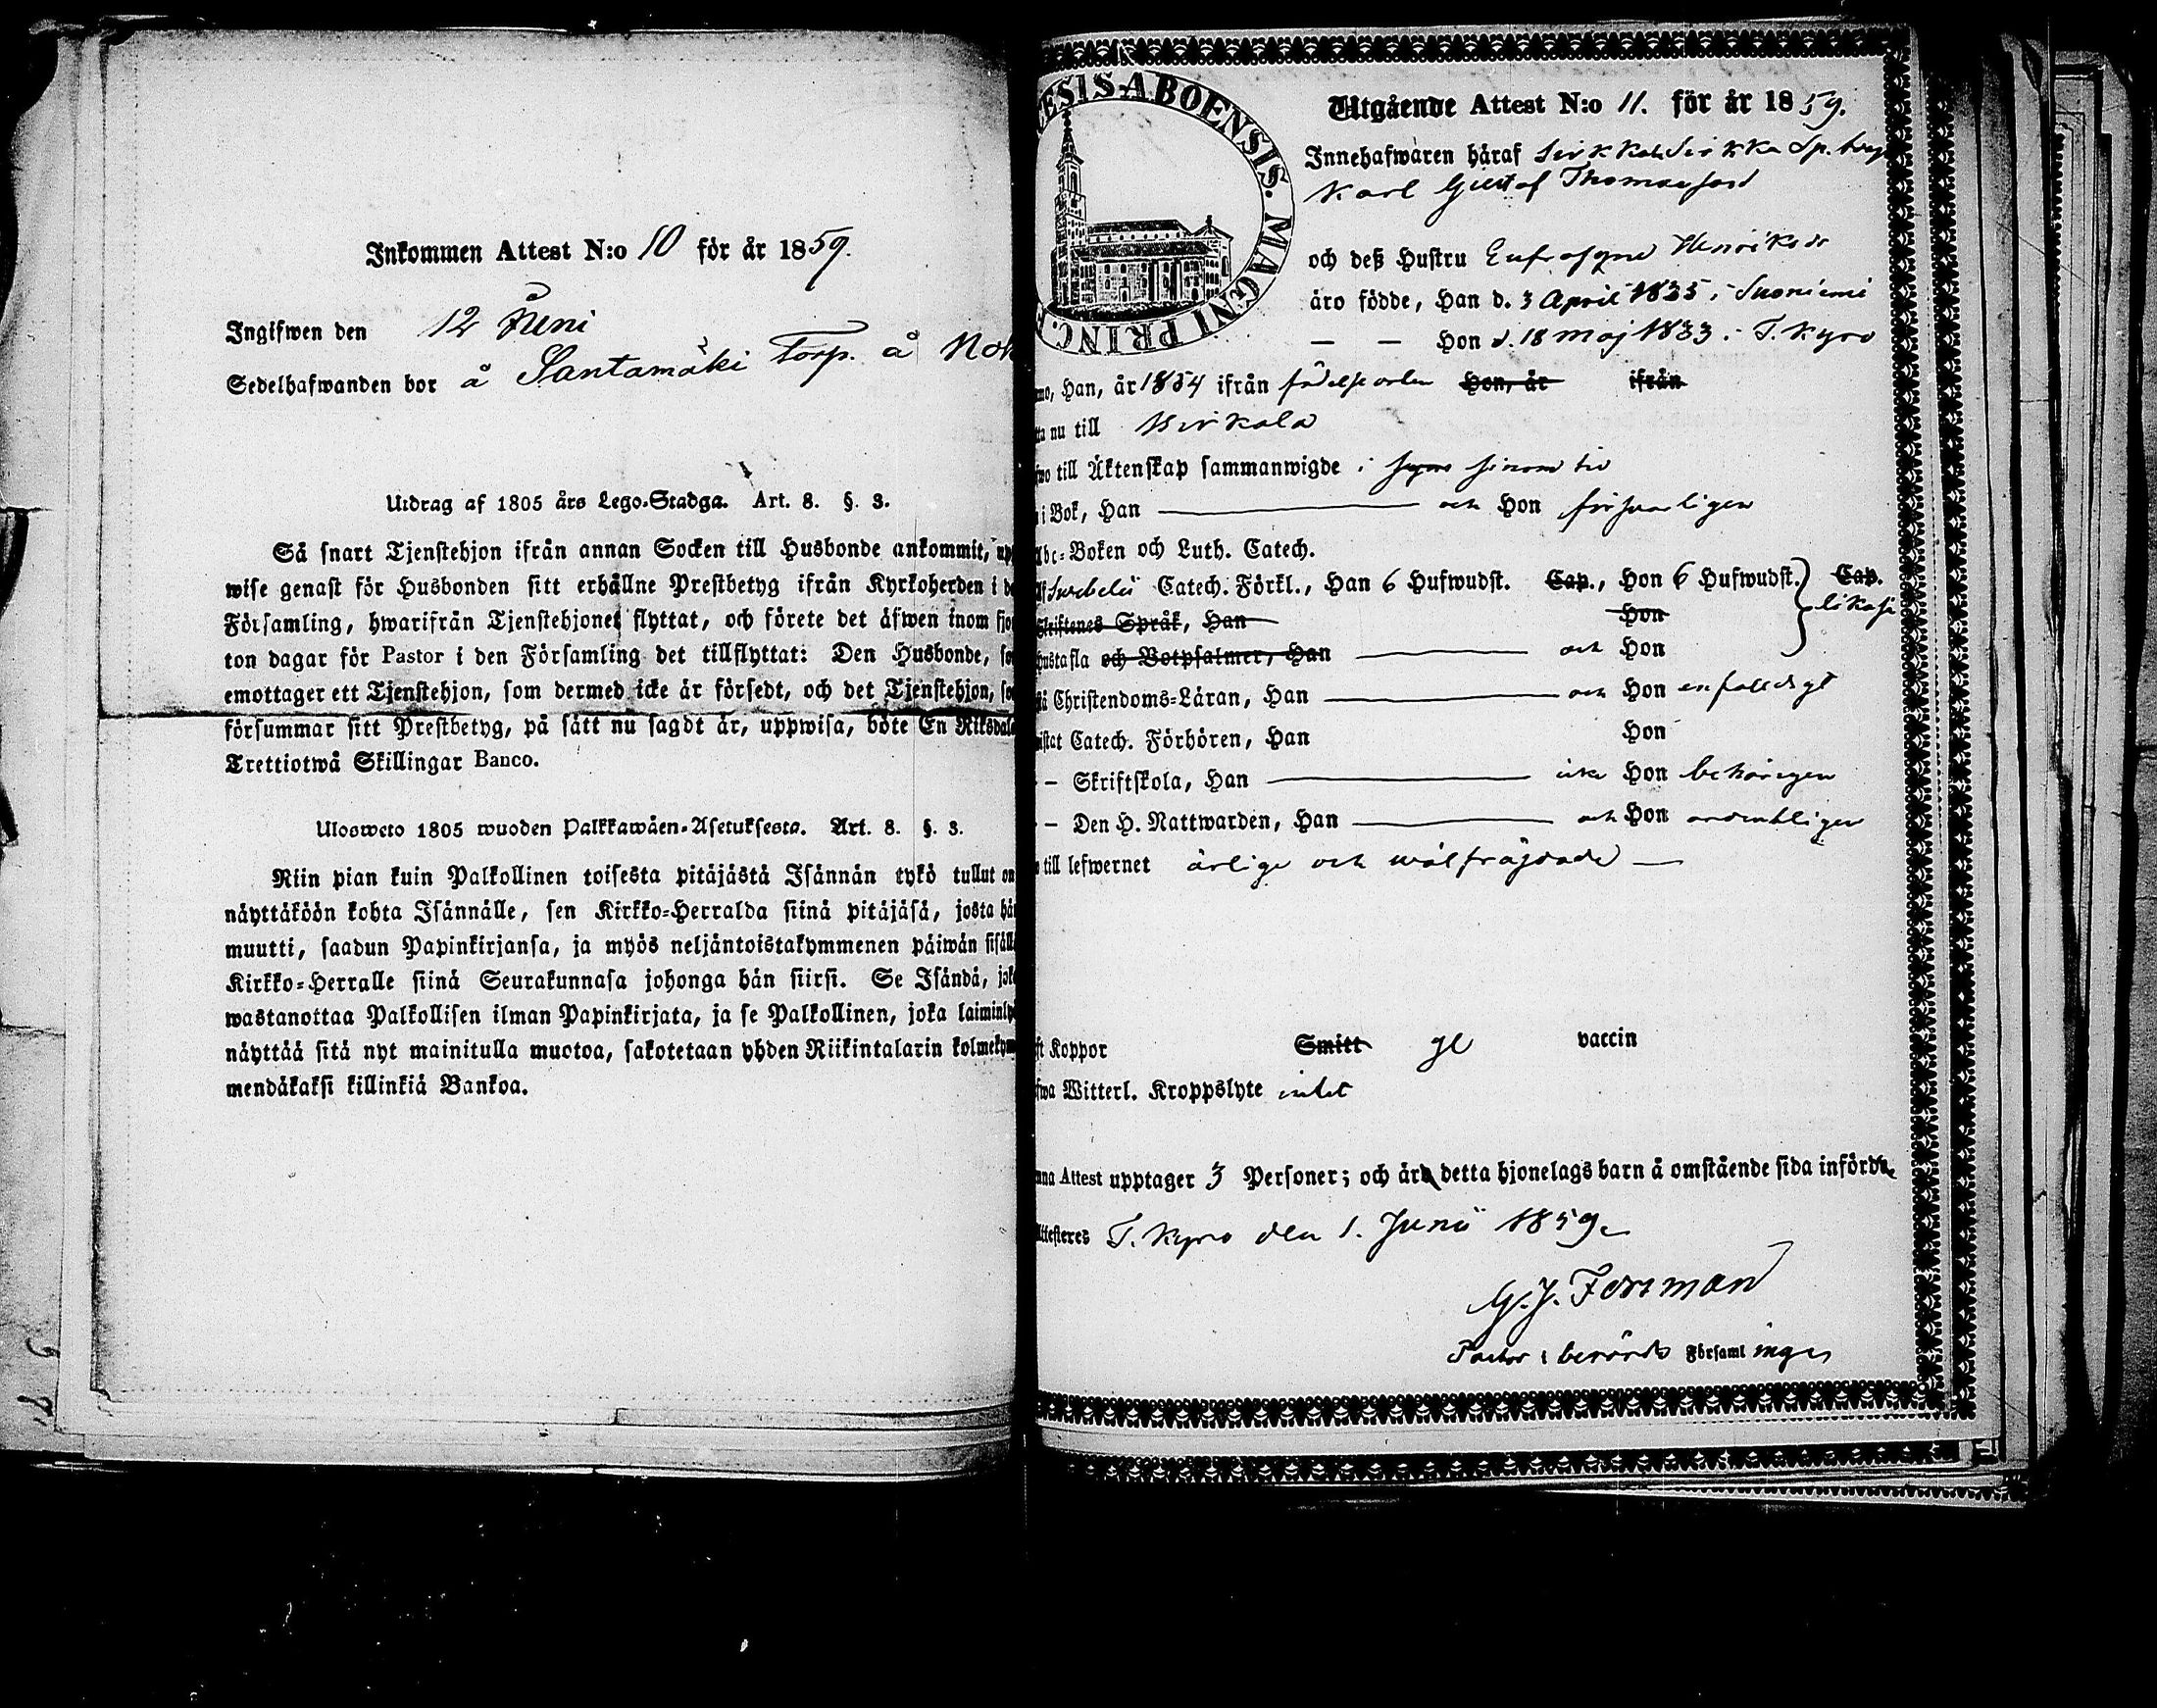 Inkommen Attest N:o 10 för år 1859.
Ingifwen den 12 Juni
Sedelhafwanden bor å Santamäki Torp. å Nok
Utdrag af 1805 års Lego-Stadga. Art. 8. §. 3.
Så snart Tjenstehjon ifrån annan Socken till Husbonde ankommit, up
wise genast för Husbonden sitt erhållne Prestbetyg ifrån Kyrkoherden i de
Församling, hwarifrån Tjenstehjonet flyttat, och förete det äfwen inom fjor
ton dagar för Pastor i den Församling det tillflyttat: Den Husbonde, so
emottager ett Tjenstehjon, som dermed icke är försedt, och det Tjenstehjon, so
försummar sitt Prestbetyg, på sätt nu sagdt är, uppwisa, böte En Riksdale
Trettiotwå Skillingar Banco.
Ulosweto 1805 wuoden Palkkawäen-Asetuksesta. Art. 8. §. 3.
Niin pian kuin Palkollinen toisesta pitäjästä Isännän tykö tullut on
näyttäköön kohta Isännälle, sen Kirkko-Herralda siinä pitäjäsä, josta hän
muutti, saadun Papinkirjansa, ja myös neljäntoistakymmenen päiwän sisällä
Kirkko-Herralle siinä Seurakunnasa johonga hän siirsi. Se Isändä, joka
wastanottaa Palkollisen ilman Papinkirjata, ja se Palkollinen, joka laiminly
näyttää sitä nyt mainitulla muotoa, sakotetaan yhden Riikintalarin kolmekym
mendäkaksi killinkiä Bankoa.
ESIS ABOENSIS. MAGNI PRINC. F
Utgående Attest N:o 11. för år 1859.
Innehafwaren häraf Sirkka
Karl Gustaf Thomasson
och deß Hustru Eufrosyne Henriksdr
äro födde, Han d. 3 April 1835 i Suoniemi
— — Hon d. 18 Maj 1833 i T. Kyro
mo, Han, år 1854 ifrån födelseorten Hon, år ifrån
ta nu till Birkala
wo till Äktenskap sammanwigde i
i Bok, Han — och Hon försvarligen
Abc-Boken och Luth. Catech.
Svebelii Catech. Förkl., Han 6 Hufwudst. Cap., Hon 6 Hufwudst. Cap.
Skriftenes Språk, Han Hon likaså
hustafla och Botpsalmer, Han — och Hon
å Christendoms-Läran, Han — och Hon enfaldigt
istat Catech. Förhören, Han Hon
— Skriftskola, Han — Hon behörigen
— Den H. Nattwarden, Han — och Hon ordentligen
till lefwernet ärlige och wälfräjdade —
ft Koppor Smitt vaccin
fwa Witterl. Kroppslyte intet
nna Attest upptager 3 Personer; och äro detta hjonelags barn å omstående sida införde
Attesteres T. Kyro den 1. Junii 1859.
G. J. Forsman
Pastor i berörde Församlingen